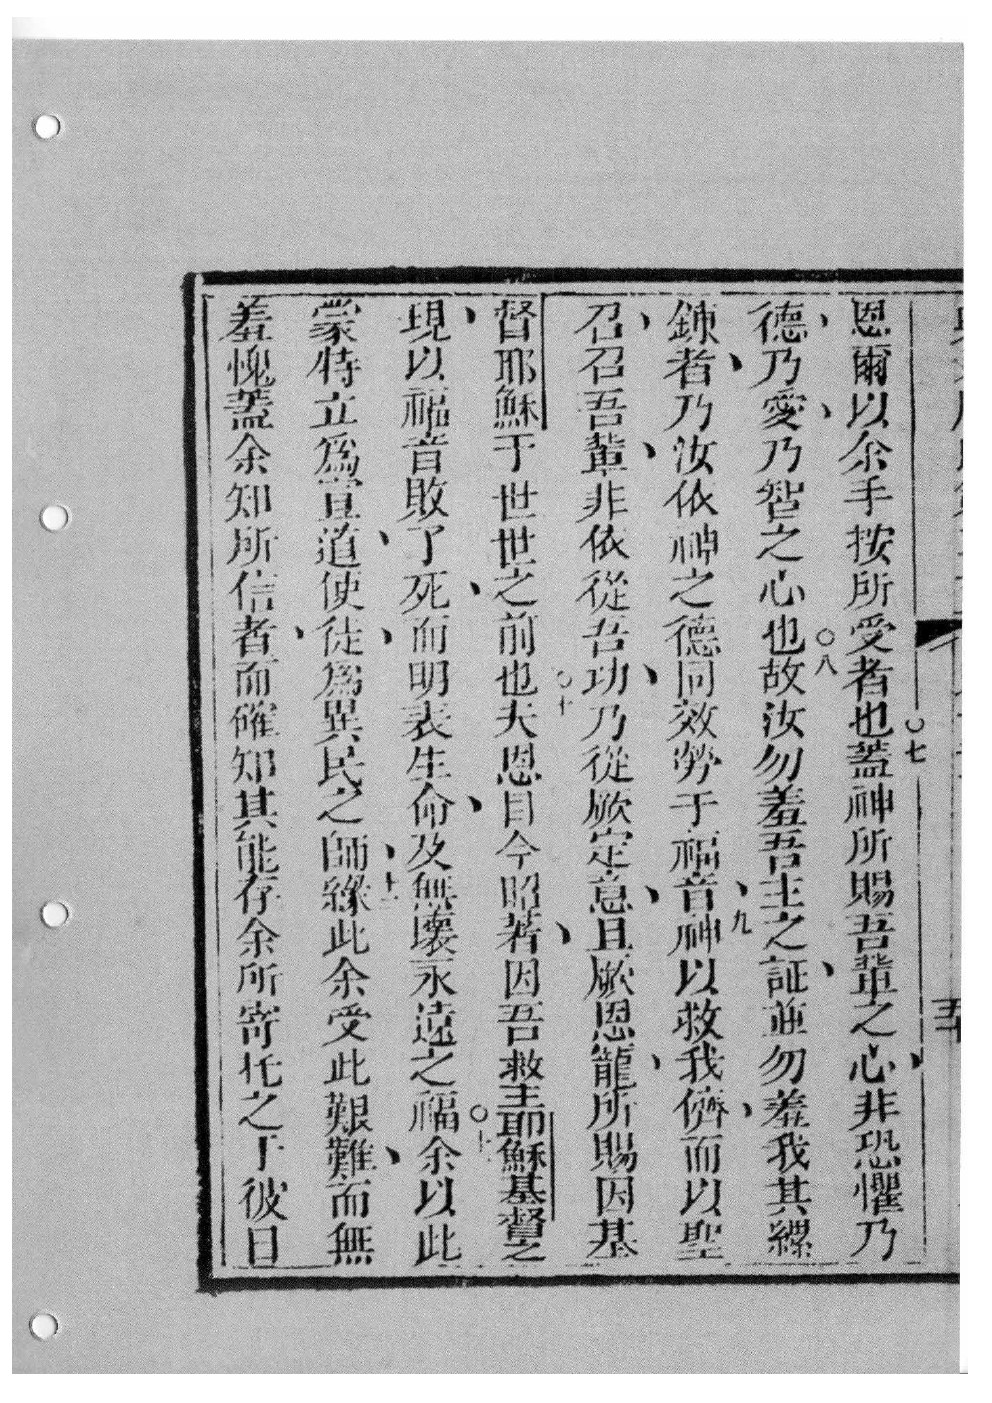 恩爾以余手按所受者也○七蓋神所賜吾輩之心非恐懼乃
德乃愛乃智之心也○八故汝勿羞吾主之証並勿羞我其縲
鍊者乃汝依神之德同效勞于福音○九神以救我儕而以聖
召召吾輩非依從吾功乃從厥定意且厥恩寵所賜因基
督耶穌于世世之前也○十夫恩目今昭著因吾救主耶穌基督之
現以福音敗了死而明表生命及無壞永遠之福○十一余以此
蒙特立為宣道使徒為異民之師十二緣此余受此艱難而無
羞愧蓋余知所信者而確知其能存余所寄托之于彼日